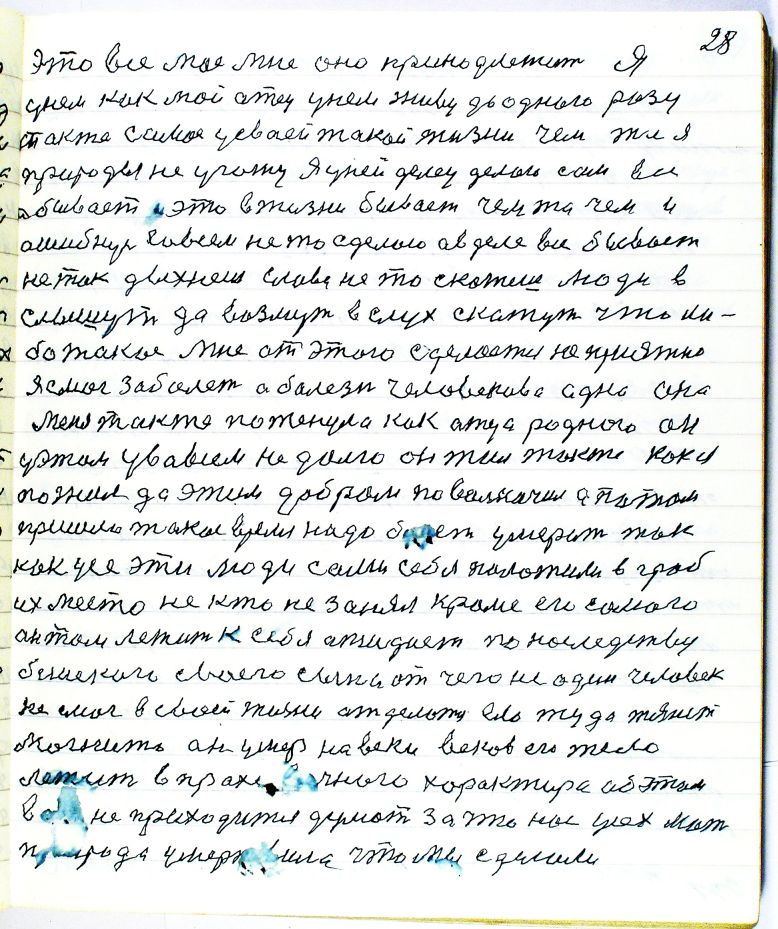 28
Это все мое мне оно принодлежит Я
унем как мой атец унем живу до одного разу
также самое усваей такой жизни чем же я
природы не угожу Я уней делец делаю сам все
бывает и это в жизни бывает чем та чем и
ошибнус Совсем не то сделаю авделе все бывает
не так дыхнеш слова не то скажиш люди в
слышут да возмут в слух скажут что ли-
бо такое мне от этого сделается не приятно
Я смог заболет а болезн человекова адна она
меня также потенула как атца родного он
уэтом усвавсем не долго он жил также как и
пожил да этим добром повалначил а патом
пришло такое время надо будет умерат так
как усе эти люди сами себя положили в гроб
их место не кто не занял кроме его самого
он там лежит к себя ажидает по наследству
близкаго своего сына от чего не один человек
не смог в своей жизни отделатц его туда тянет
могнито ан умер навеки веков его тело
лежит в прахе вечного характира аб этом
не приходится думат За что нас усех мат
природа умертвила что мы сделали